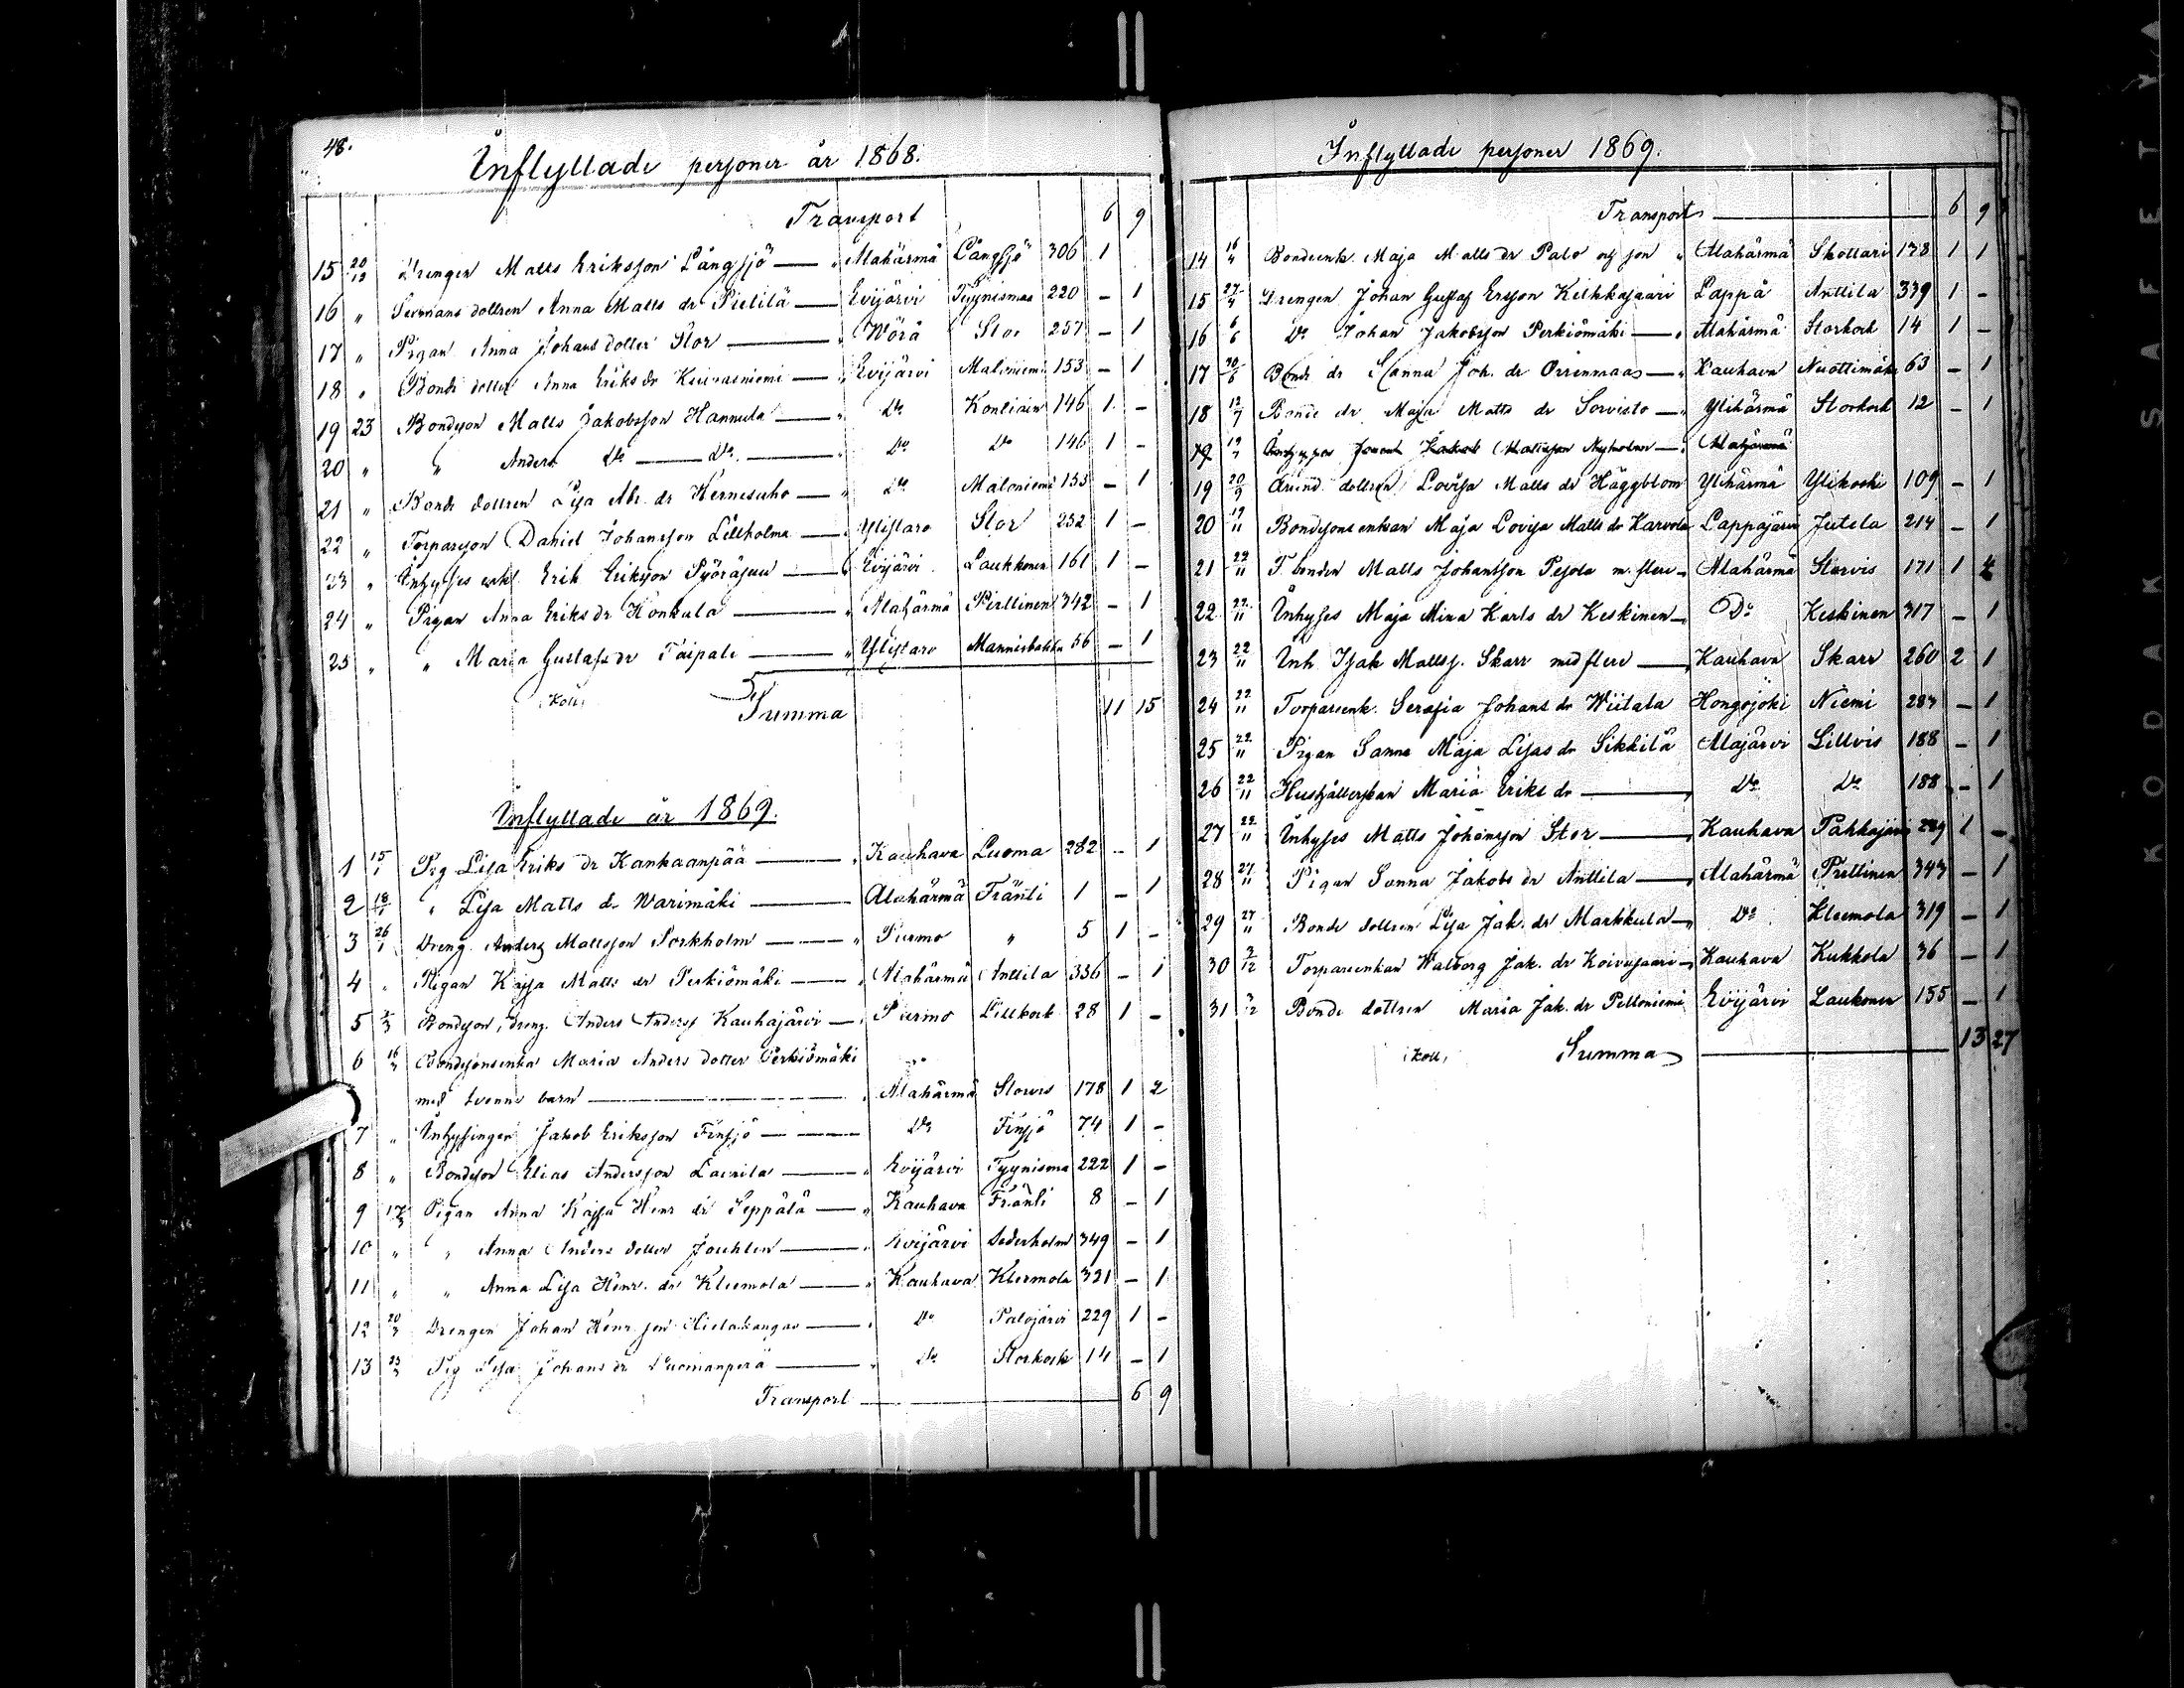 48.
Inflyttade personer år 1868.
Transport 6 9
15 20/12 Drengen Matts Eriksson Långsjö — " Alahärmä Långsjö 306 1
16 " dottren Anna Matts dr Pietilä — Evijärvi Tyynismaa 220 - 1
17 " Pigan Anna Johans dotter Stor — " Wörå Stor 257 - 1
18 " Bonde dotter Anna Eriks dr — " Evijärvi Maloniemi 153 - 1
19 23 Bondson Matts Jakobsson Hannula — " Do 146 1 -
20 " " Anders Do — Do — " Do Do 146 1 -
21 " Bonde dottren Lisa Abr. dr — " Do Maloniemi 153 - 1
22 " Torparson Daniel Johansson Lillholma — " Ylistaro Stor 252 1 -
23 " Inhyses Erik Eriksson — " Evijärvi Laukkonen 161 1 -
24 " Pigan Anna Eriks dr Honkala — " Alahärmä Pirttinen 342 - 1
25 " " Maria Gustafs dr Taipale — " Ylistaro 56 - 1
Koll. Summa 11 15
Inflyttade år 1869.
1 15/1 Pig Lisa Eriks dr Kankaanpää — " Kauhava Luoma 282 - 1
2 18/1 " Lisa Matts dr Warimäki — Alahärmä Fränti 1 - 1
3 26/1 Dreng Anders Mattsson Porkholm — " Purmo " 5 1 -
4 " Pigan Kajsa Matts dr Perkiömäki — " Alahärmä Anttila 336 - 1
5 Bondson, dreng. Anders Anderss Kauhajärvi — " Purmo Lillkock 28 1 -
6 Bondesonsenka Maria Anders dotter Perkiömäki
med tvenne barn — " Alahärmä Storvis 178 1 2
7 " Inhysingen Jakob Eriksson Finsjö — Do Finsjö 74 1 -
8 " Bondeson Elias Andersson Laurila — " Evijärvi Tyynismaa 222 1 -
9 17/3 Pigan Anna Kajsa Henr dr Seppälä — " Kauhava Fränti 8 - 1
10 " " Anna Anders dotter Jouhten — " Evijärvi Sederholm 349 - 1
11 " " Anna Lisa Henr. dr Kleemola — " Kauhava Kleemola 321 - 1
12 20/3 Drengen Johan Henr son Hietakangas — " Do Palojärvi 229 1 -
13 23/3 Pig Lisa Johans dr Luomanperä — " Do Storkock 14 - 1
Transport — 6 9
Inflyttade personer 1869.
Transport — 6 9
14 16/4 Bondeenk. Maja Matts dr Palo och son " Alahärmä Skottari 138 1 1
15 27/4 Drengen Johan Gustaf Ersson Lappå Anttila 339 1 -
16 6/6 Do Johan Jakobsson Perkiömäki — " Alahärmä Storkock 14 1 -
17 20/6 Bonde dr Sanna Joh. dr Orrenmaa — " Kauhava Nuottimäki 63 - 1
18 12/7 Bonde dr Maja Matts dr Sorvisto — " Ylihärmä Storkock 12 - 1
19 Jakob Mattsson Nyholm — " Alahärmä
19 20/9 dottren Lovisa Matts dr Häggblom Ylihärmä Ylikoski 109 - 1
20 19/11 Bondesons enkan Maja Lovisa Matts dr Karvola Lappajärvi Jutela 214 - 1
21 22/11 T. bonden Matts Johansson Pesola m. flere — Alahärmä Storvis 171 1 4
22 22/11 Inhyses Maja Mina Karls dr Keskinen — Do Keskinen 317 - 1
23 22/11 Inh Isak Mattss. Skarr med flere — Kauhava Skarr 260 2 1
24 22/11 Torpareenk. Serafia Johans dr Wiitala Hongojoki Niemi 283 - 1
25 22/11 Pigan Sanna Maja Lisas dr Sikkilä Alajärvi Lillvis 188 - 1
26 22/11 Hushållerskan Maria Eriks dr — " Do Do 188 - 1
27 22/11 Inhyses Matts Johansson Stor — " Kauhava 229 1 -
28 27/11 Pigan Sanna Jakobs dr Anttila — " Alahärmä Pirttinen 343 - 1
29 27/11 Bonde dottren Lisa Jak. dr Markkula — " Do Kleemola 319 - 1
30 3/12 Torpareenkan Walborg Jak. dr Koivusaari — " Kauhava Kukkola 36 - 1
31 Bonde dottren Maria Jak. dr Peltoniemi Evijärvi Laukonen 155 - 1
Koll. Summa — 13 27
KODAK SAFETY